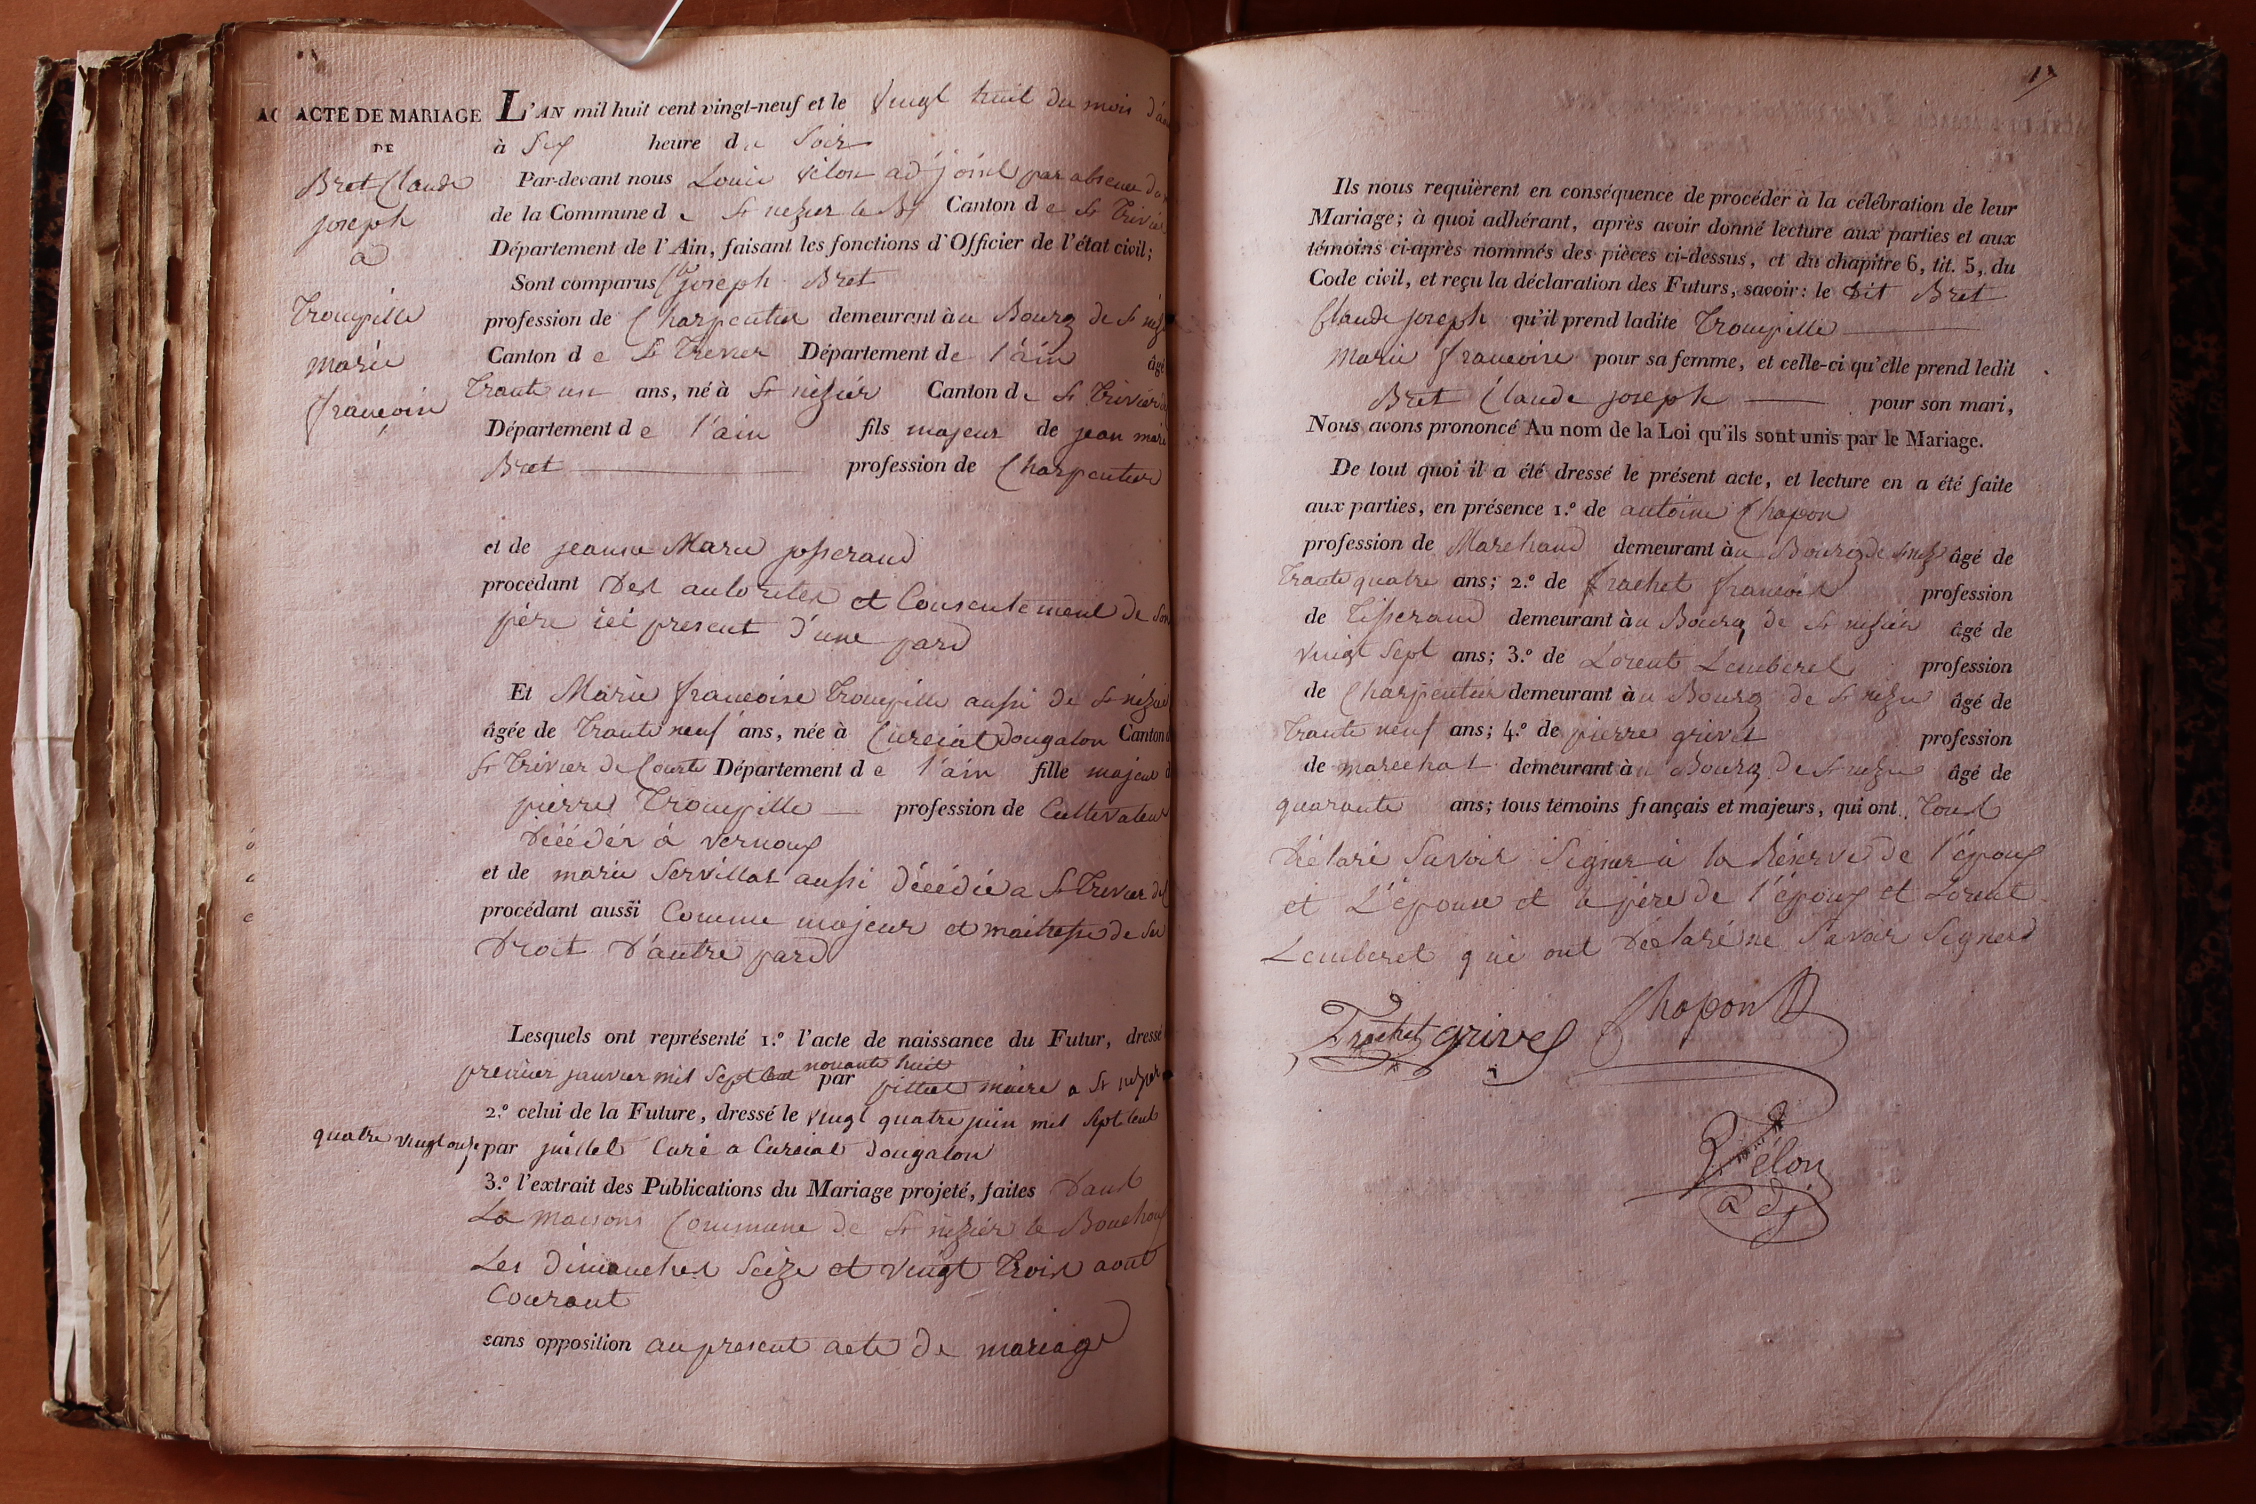 ACTE DE MARIAGE
DE
Bret Claude
joseph
a
Trompille
marie
francoise
L'AN mil huit cent vingt-neuf et le vingt huit du mois d'aou
à Six heure du Soir
Par-devant nous Louis vélon adjoint par absence du
de la Commune de St nezier le Bt Canton de St Trivier
Département de l'Ain, faisant les fonctions d'Officier de l'état civil;
Sont comparus Cde joseph Bret
profession de Charpentier demeurant à u Bourg de St nezi
Canton de St Trevier Département de l'ain âgé
Trante un ans, né à St nézier Canton de St Trivier de
Département de l'ain fils majeur de jean marie
Bret profession de Charpentier
et de jeanne Marie josserand
procédant Des autorites et Consentement de Son
père ici present d'une pard
Et Marie francoise Trompille aussi de St nézier
âgée de Trante neuf ans, née à Curciat dongalon Canton d
St Trivier de Courte Département de l'ain fille majeur d
pierre Trompille profession de Cultivateur
Décédér à vernoux
et de marie Servillat aussi décédée a St Trevier de
procédant aussi Comme majeur et maitresse de Ses
Droit D'autre pard
Lesquels ont représenté 1.º l'acte de naissance du Futur, dressé
nonante huit
premier janvier mil Sept Cent par pittet maire a St nezier
2.º celui de la Future, dressé le vingt quatre juin mil Sept Cent
quatre vingt onze par juillet Curé a Curciat dongalon
3.º l'extrait des Publications du Mariage projeté, faites Dans
La maisons Commune de St nézier le Bouchoux
Les dimanches Seize et vingt Trois aout
Courant
sans opposition au present acte de mariage
17
Ils nous requièrent en conséquence de procéder à la célébration de leur
Mariage; à quoi adhérant, après avoir donné lecture aux parties et aux
témoins ci-après nommés des pièces ci-dessus, et du chapitre 6, tit. 5, du
Code civil, et reçu la déclaration des Futurs, savoir: le Dit Bret
Claude joseph qu'il prend ladite Trompille
Marie francoise pour sa femme, et celle-ci qu'elle prend ledit
Bret Claude joseph pour son mari,
Nous avons prononcé Au nom de la Loi qu'ils sont unis par le Mariage.
De tout quoi il a été dressé le présent acte, et lecture en a été faite
aux parties, en présence 1.º de antoine Chapon
profession de Marchand demeurant à u Bourg de St nez âgé de
Trante quatre ans; 2.º de frachet francois profession
de Tisserand demeurant à u Bourg de St nezier âgé de
vingt Sept ans; 3.º de Lorent Lemberel profession
de Charpentier demeurant à u Bourg de St nezie âgé de
Trante neuf ans; 4.º de pierre grivet profession
de marechal demeurant à u Bourg de St nezie âgé de
quarante ans; tous témoins français et majeurs, qui ont Tous
Déclaré Savoir Signer à la Réserve de l'époux
et L'épouse et le père de l'époux et Lorent
Lemberel qui ont Déclaré ne Savoir Signerd
Frachet grivel Chapon
Vélon
adj